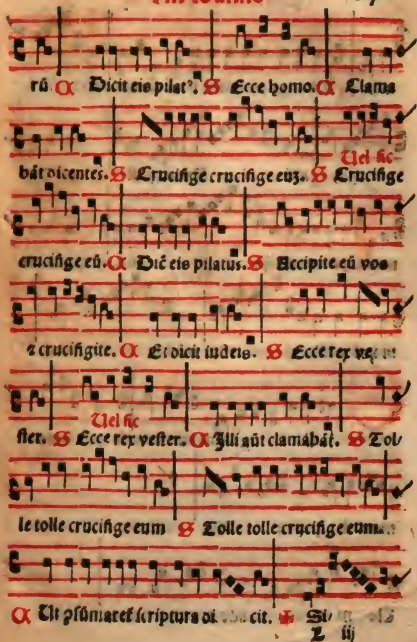 rū. C Dicit eis pilatꝰ. S Ecce homo. C Clama
bāt dicentes. S Crucifige crucifige euz. S Crucifige
Uel sic
crucifige eū. C Dic̄ eis pilatus. S Accipite eū vos
⁊ crucifigite. C Et dicit iudeis. S Ecce rex ve
ster. S Ecce rex vester. C Illi aūt clamabāt. S Tol
Uel sic
le tolle crucifige eum S Tolle tolle crucifige eum
C Ut ꝯsūmaret̄ scriptura di cit. ✠ Si
iij